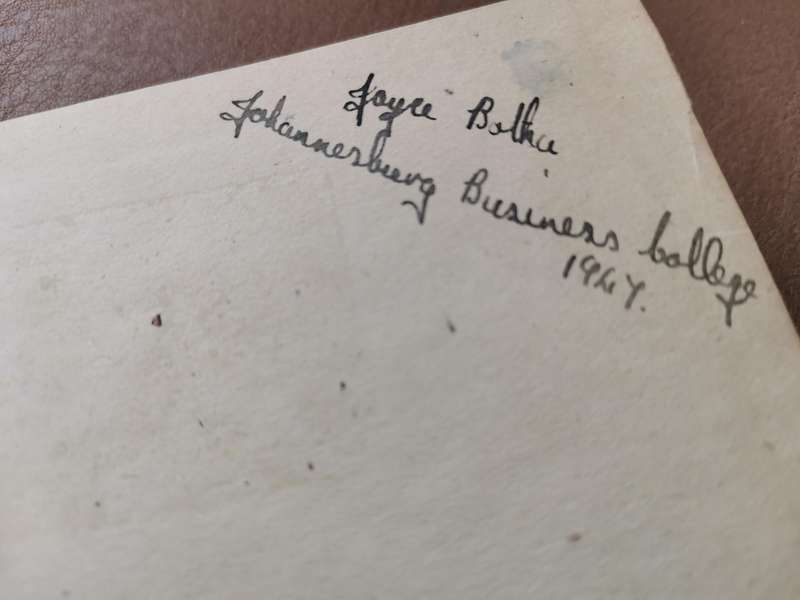 Joyce Botha
Johannesburg Business College
1947.